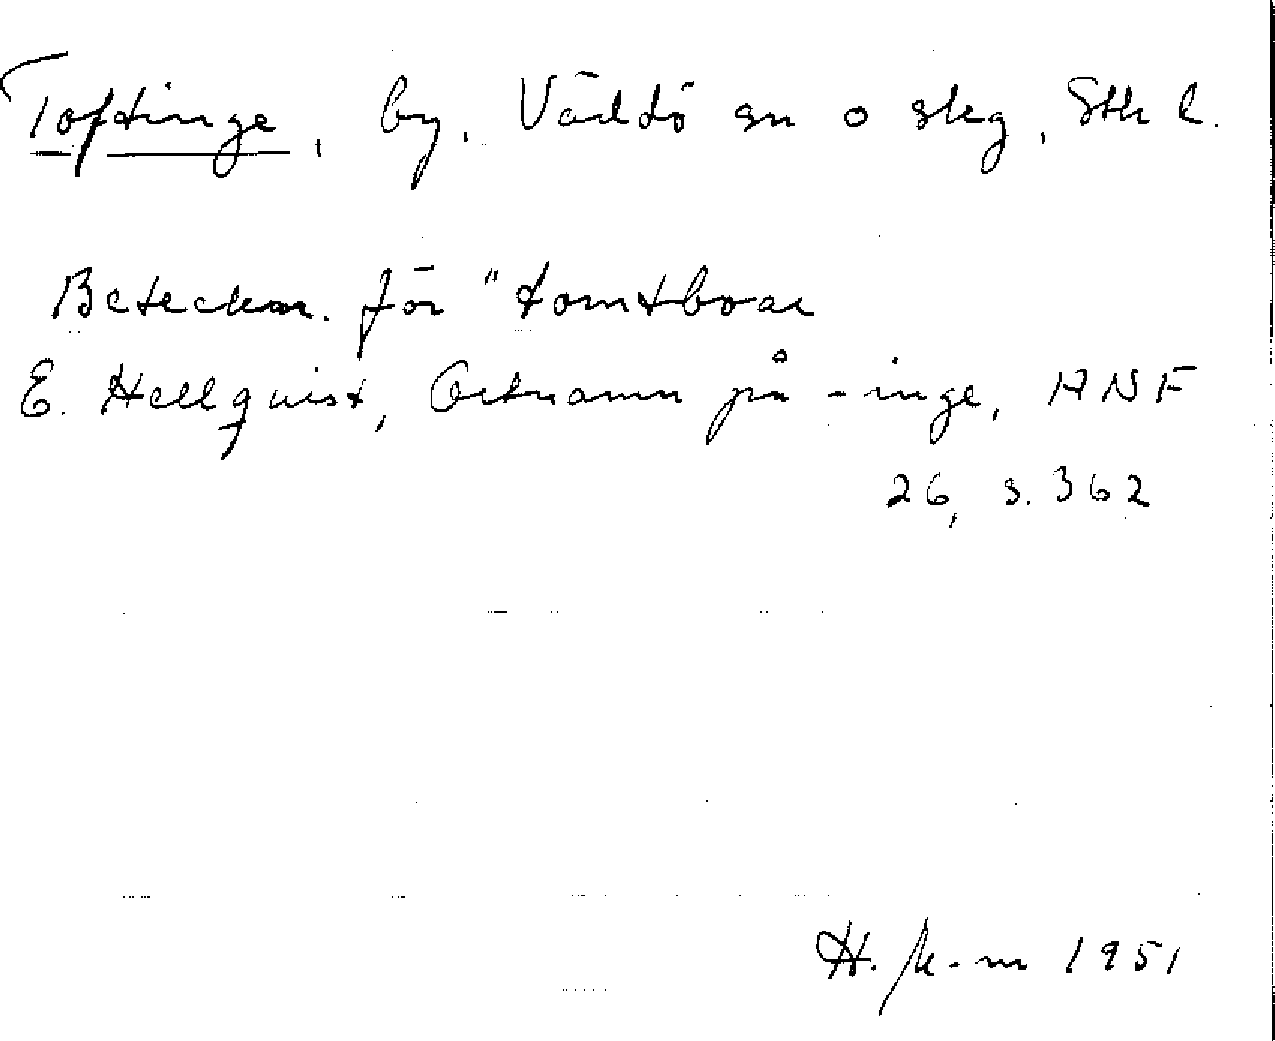 Toftinge, by, Väddö sn o skg, Sth l.
Beteckn. för "tomtboar
E. Hellquist, Ortnamn på -inge, ANF
26, s. 362
H. 1951